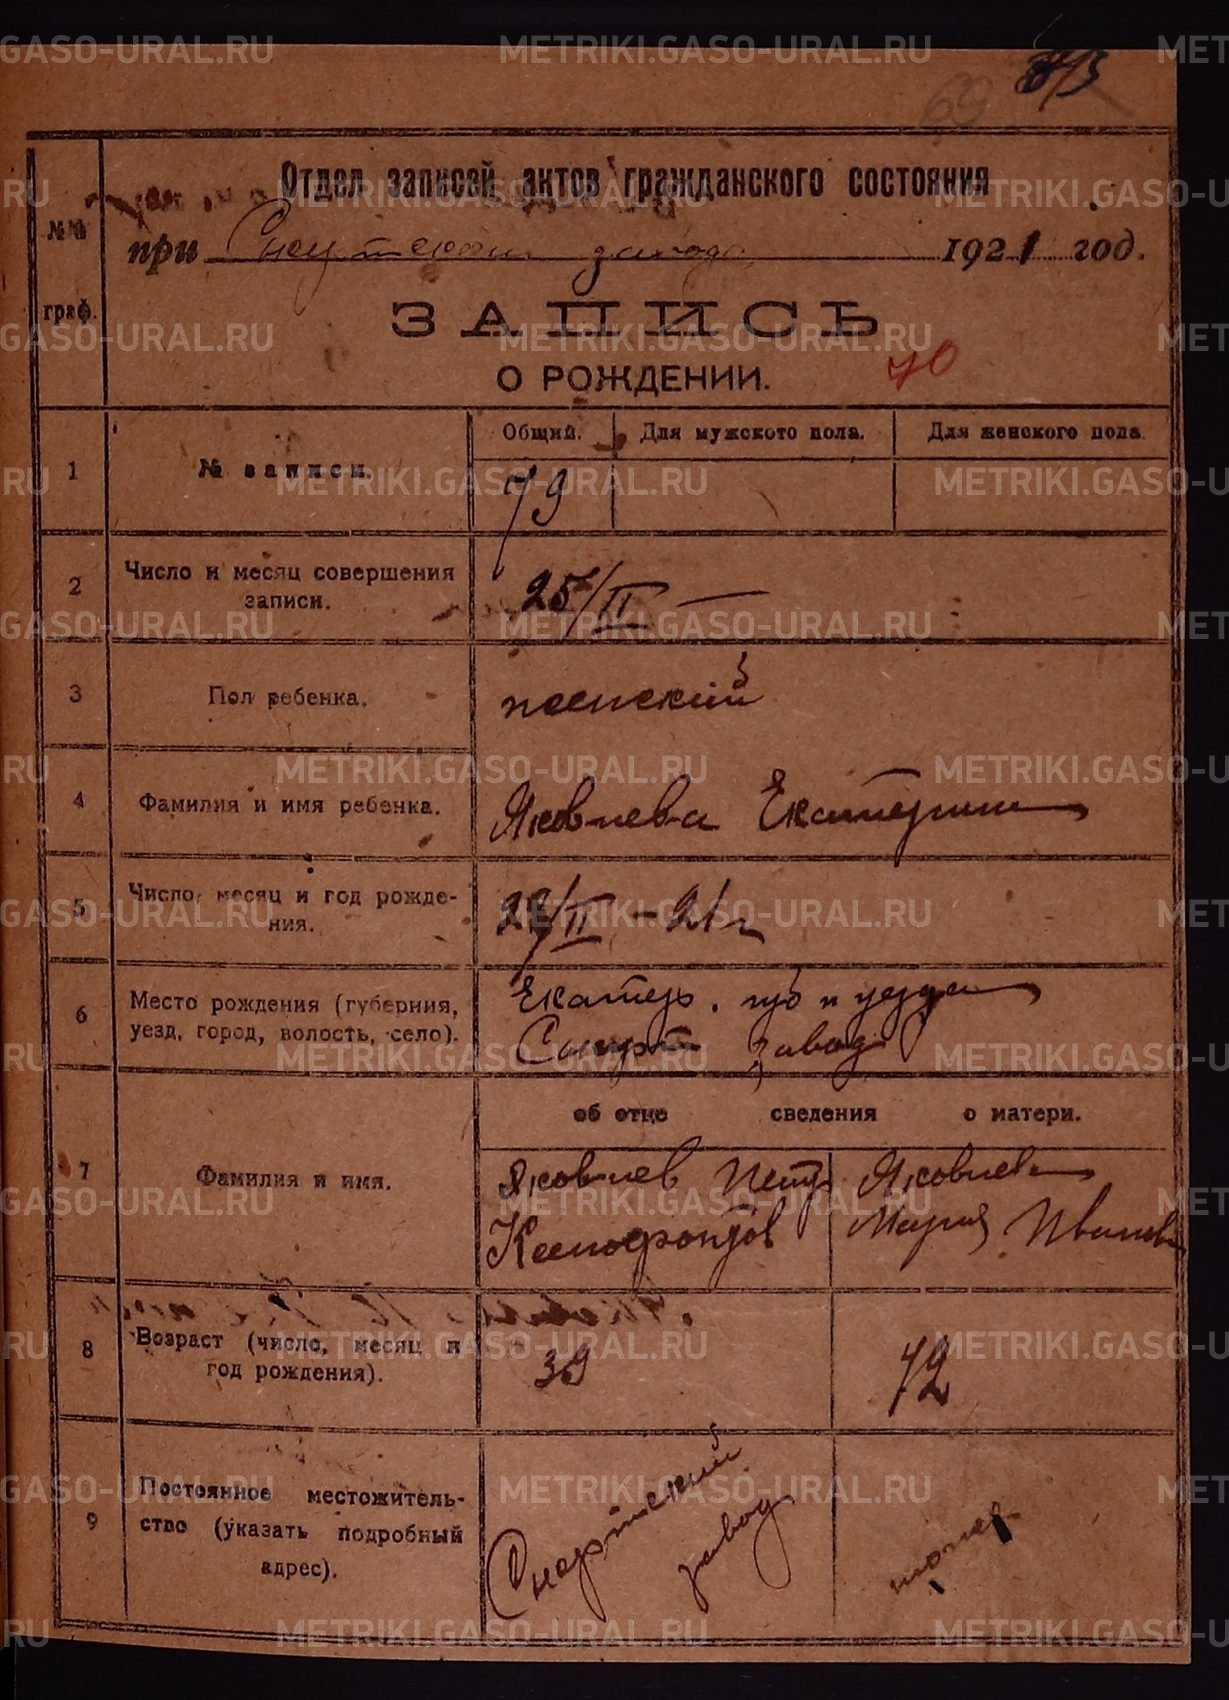 METRIKI.GASO-URAL.RU
69
Отдел записей актов гражданского состояния
№№ граф.
при заводе 1921 год.
ЗАПИСЬ
О РОЖДЕНИИ.
70
Общий. Для мужского пола. Для женского пола.
1 № записи. 79
2 Число и месяц совершения записи. 25/II —
3 Пол ребенка. женский
4 Фамилия и имя ребенка. Яковлева Екатерина
5 Число, месяц и год рождения. /II - 21 г
6 Место рождения (губерния, уезд, город, волость, село).
Екатер. губ и уезда
завод
об отце сведения о матери.
7 Фамилия и имя.
Яковлев Петр Ксенофонтов
Яковлева Мария Иванова
8 Возраст (число, месяц и год рождения). 39 42
9 Постоянное местожительство (указать подробный адрес).
завод
тоже